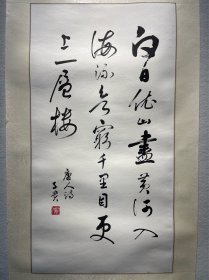 白日依山盡黄河入
海流欲窮千里目更
上一層樓
唐人詩